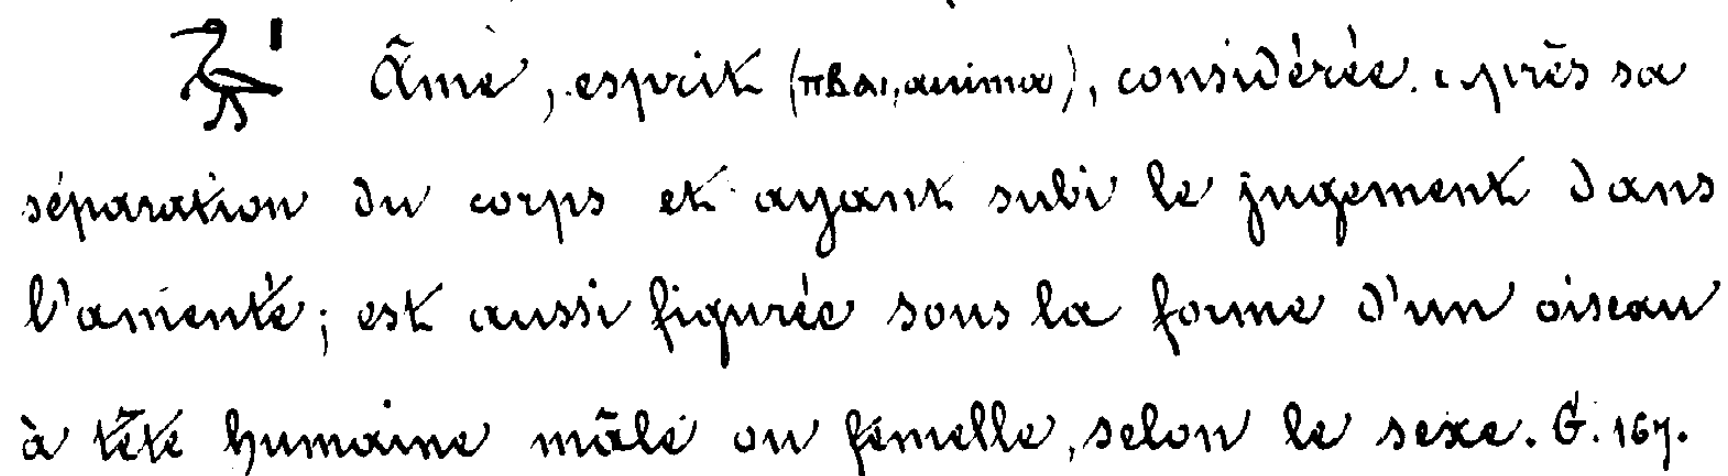 𓅡𓏤 Âme, esprit (ⲡⲃⲁⲓ, anima), considérée après sa
séparation du corps et ayant subi le jugement dans
l'amenté; est aussi figurée sous la forme d'un oiseau
à tête humaine mâle ou femelle, selon le sexe. G. 167.